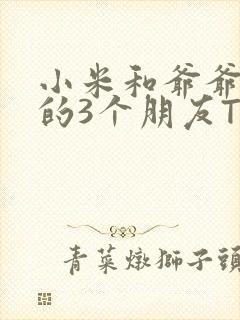 小米和爷爷
的3个朋友T
青菜燉獅子頭